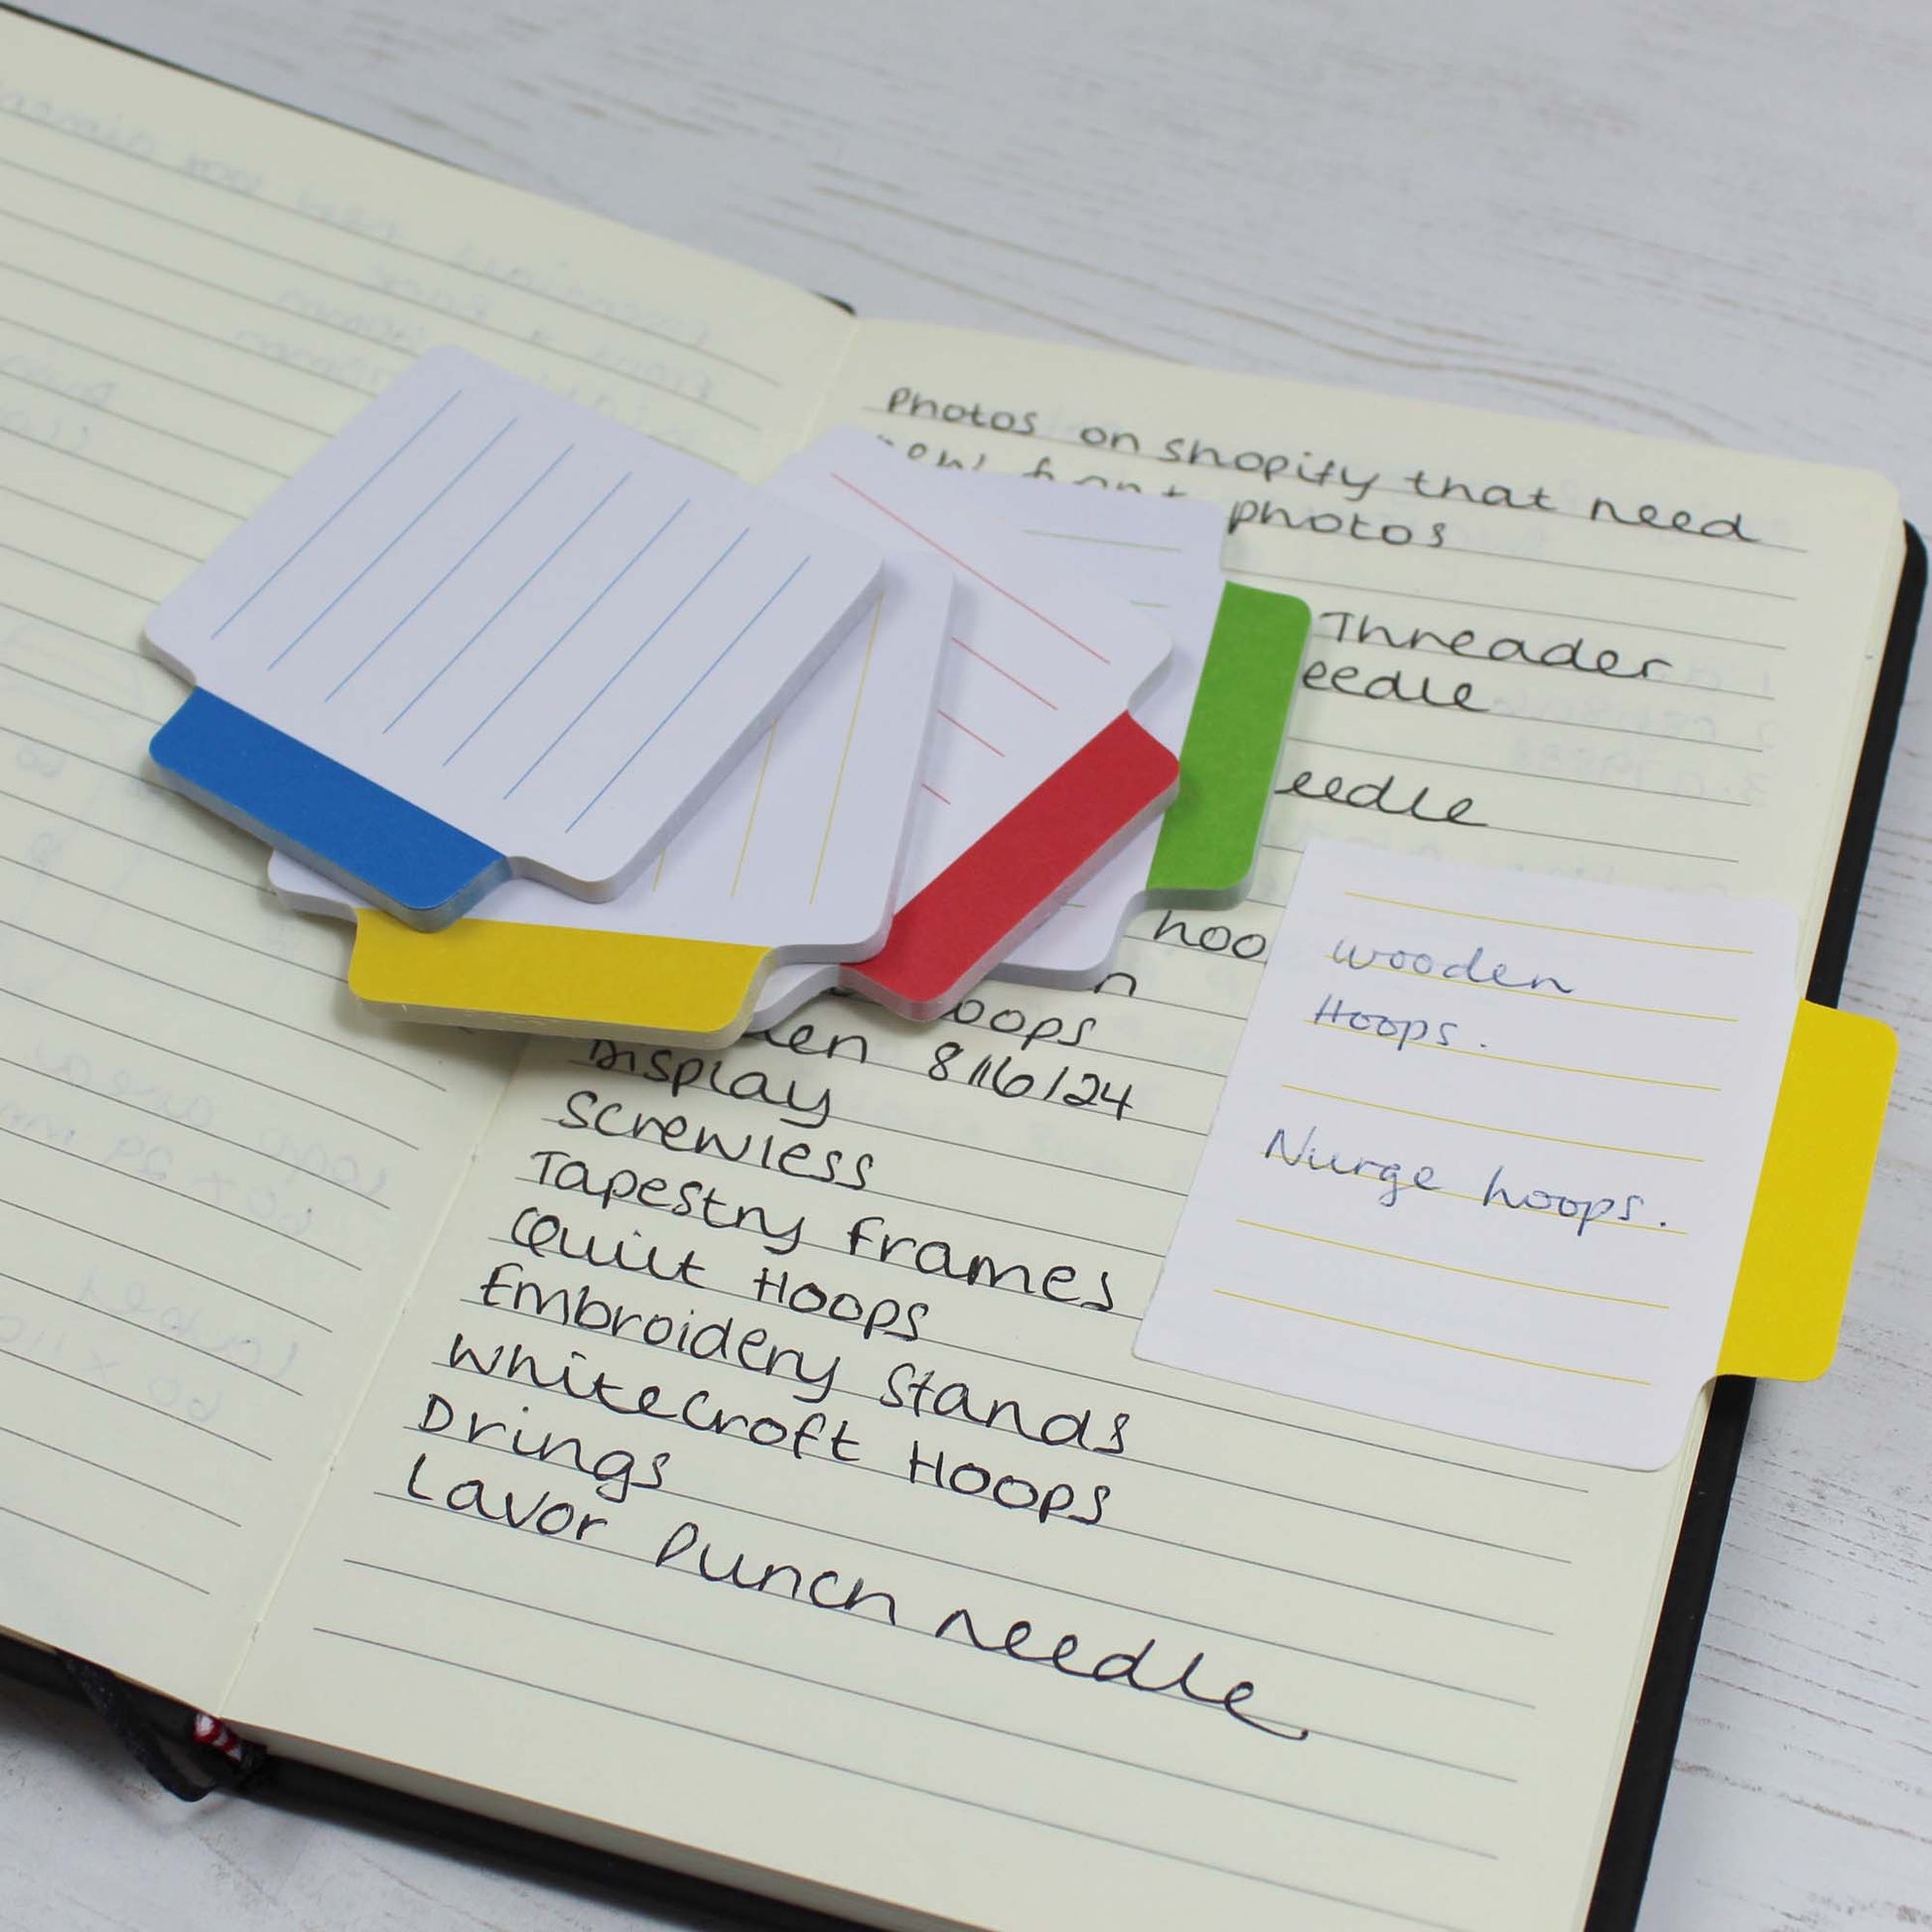 Photos on shopify that need
photos
Threader
eedle
eedle
hoo
n
oops
en 8/16/24
Display
Screwless
Tapestry frames
Quilt Hoops
Embroidery Stands
Whitecroft Hoops
Drings
Lavor Punch needle
wooden
Hoops.
Nurge hoops.